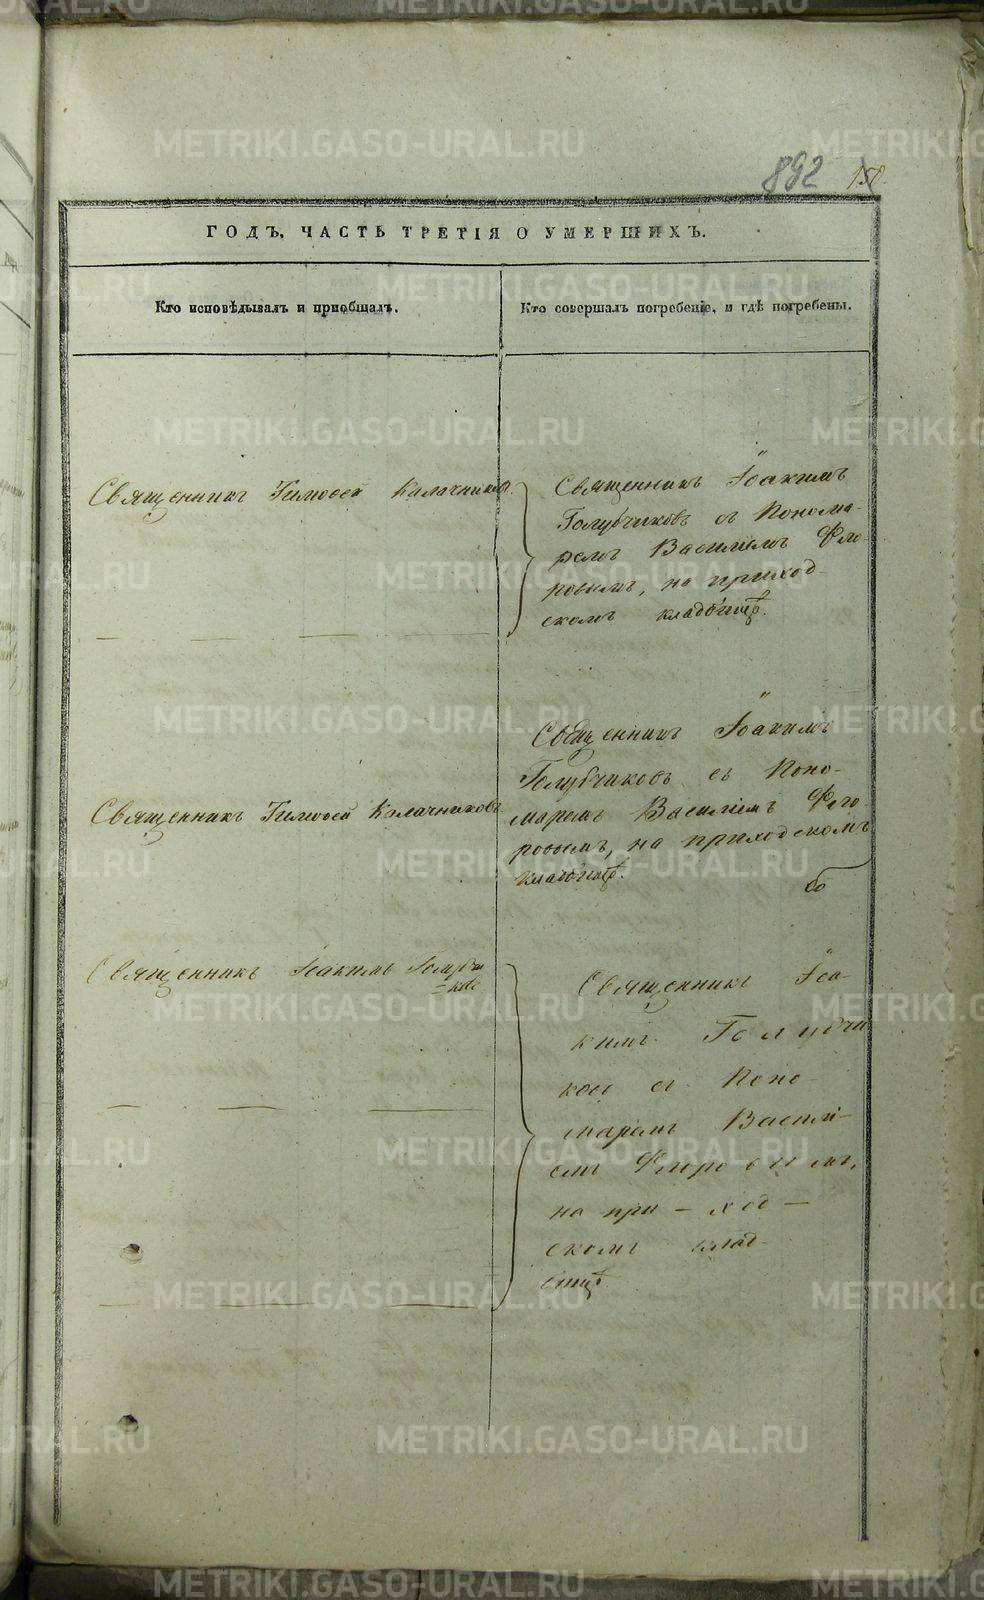 892 158.
ГОДЪ, ЧАСТЬ ТРЕТІЯ О УМЕРШИХЪ.
Кто исповѣдывалъ и приобщалъ.
Кто совершалъ погребеніе, и гдѣ погребены.
Священникъ Тимоѳей Калачниковъ.
Священникъ Іоакимъ
Голубчиковъ съ Понома-
ремъ Василіемъ Фло-
ровымъ, на приход-
скомъ кладбищѣ.
Священникъ Тимоѳей Калачниковъ
Священникъ Іоакимъ
Голубчиковъ съ Поно-
маремъ Василіемъ Фло-
ровымъ, на приходскомъ
кладбищѣ.
Священникъ Іоакимъ Голубчи
=ковъ
Священникъ Іоа-
кимъ Голубчи
ковъ съ Поно-
маремъ Василі-
емъ Флоровымъ,
на при-ход-
скомъ клад-
бищѣ.
METRIKI.GASO-URAL.RU